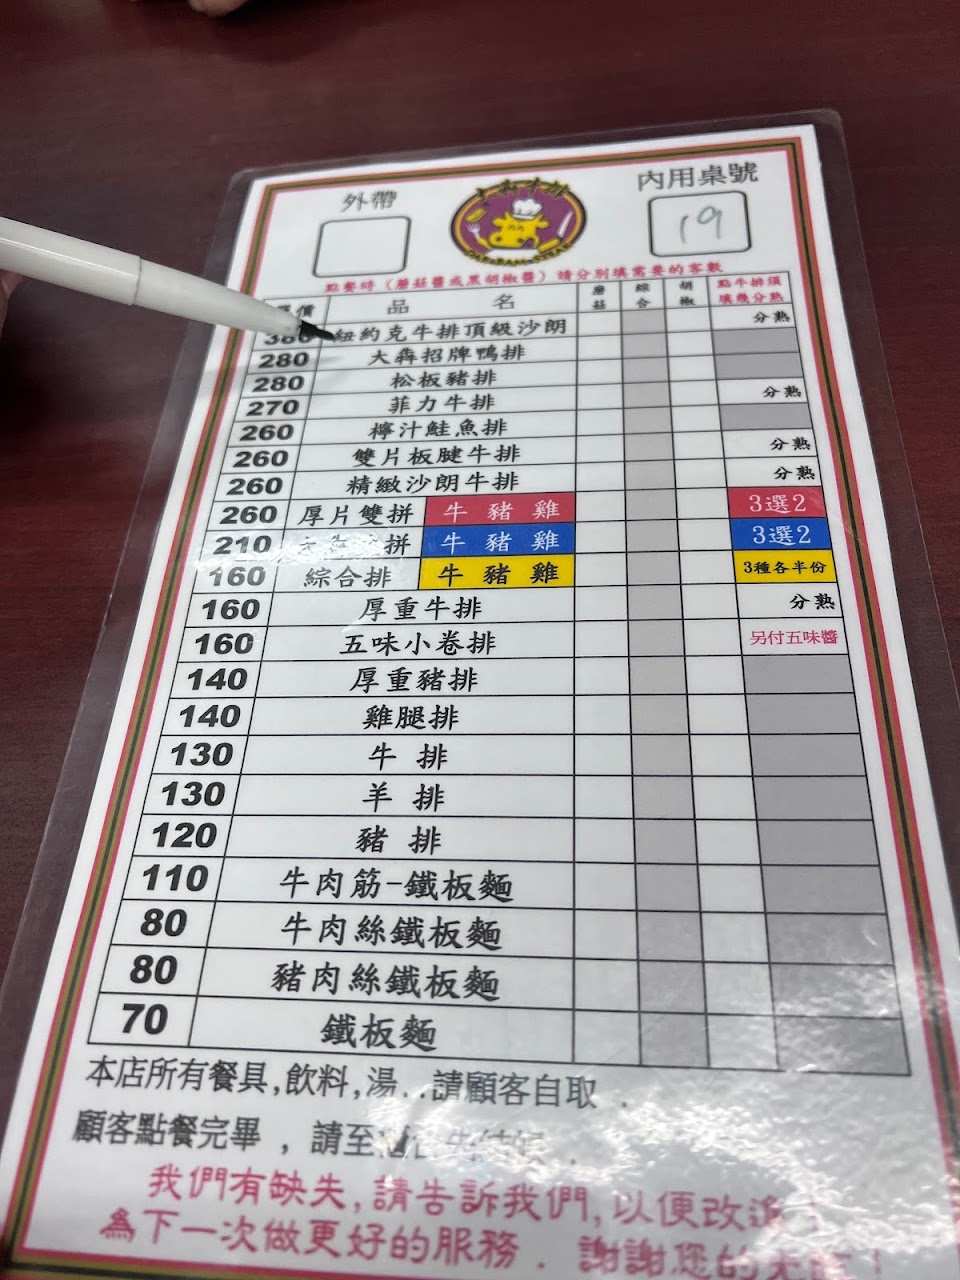 外帶
內用桌號
19
點餐時（蘑菇醬或黑胡椒醬）請分別填需要的客數
價 品 名 蘑菇 綜合 胡椒 點牛排須填幾分熟
紐約克牛排頂級沙朗 分熟
280 大犇招牌鴨排
280 松板豬排
270 菲力牛排 分熟
260 檸汁鮭魚排
260 雙片板腱牛排 分熟
260 精緻沙朗牛排 分熟
260 厚片雙拼 牛 豬 雞 3選2
210 拼 牛 豬 雞 3選2
160 綜合排 牛 豬 雞 3種各半份
160 厚重牛排 分熟
160 五味小卷排 另付五味醬
140 厚重豬排
140 雞腿排
130 牛 排
130 羊 排
120 豬 排
110 牛肉筋-鐵板麵
80 牛肉絲鐵板麵
80 豬肉絲鐵板麵
70 鐵板麵
本店所有餐具,飲料,湯..請顧客自取.
顧客點餐完畢，請至
我們有缺失,請告訴我們,以便改進
為下一次做更好的服務.謝謝您的